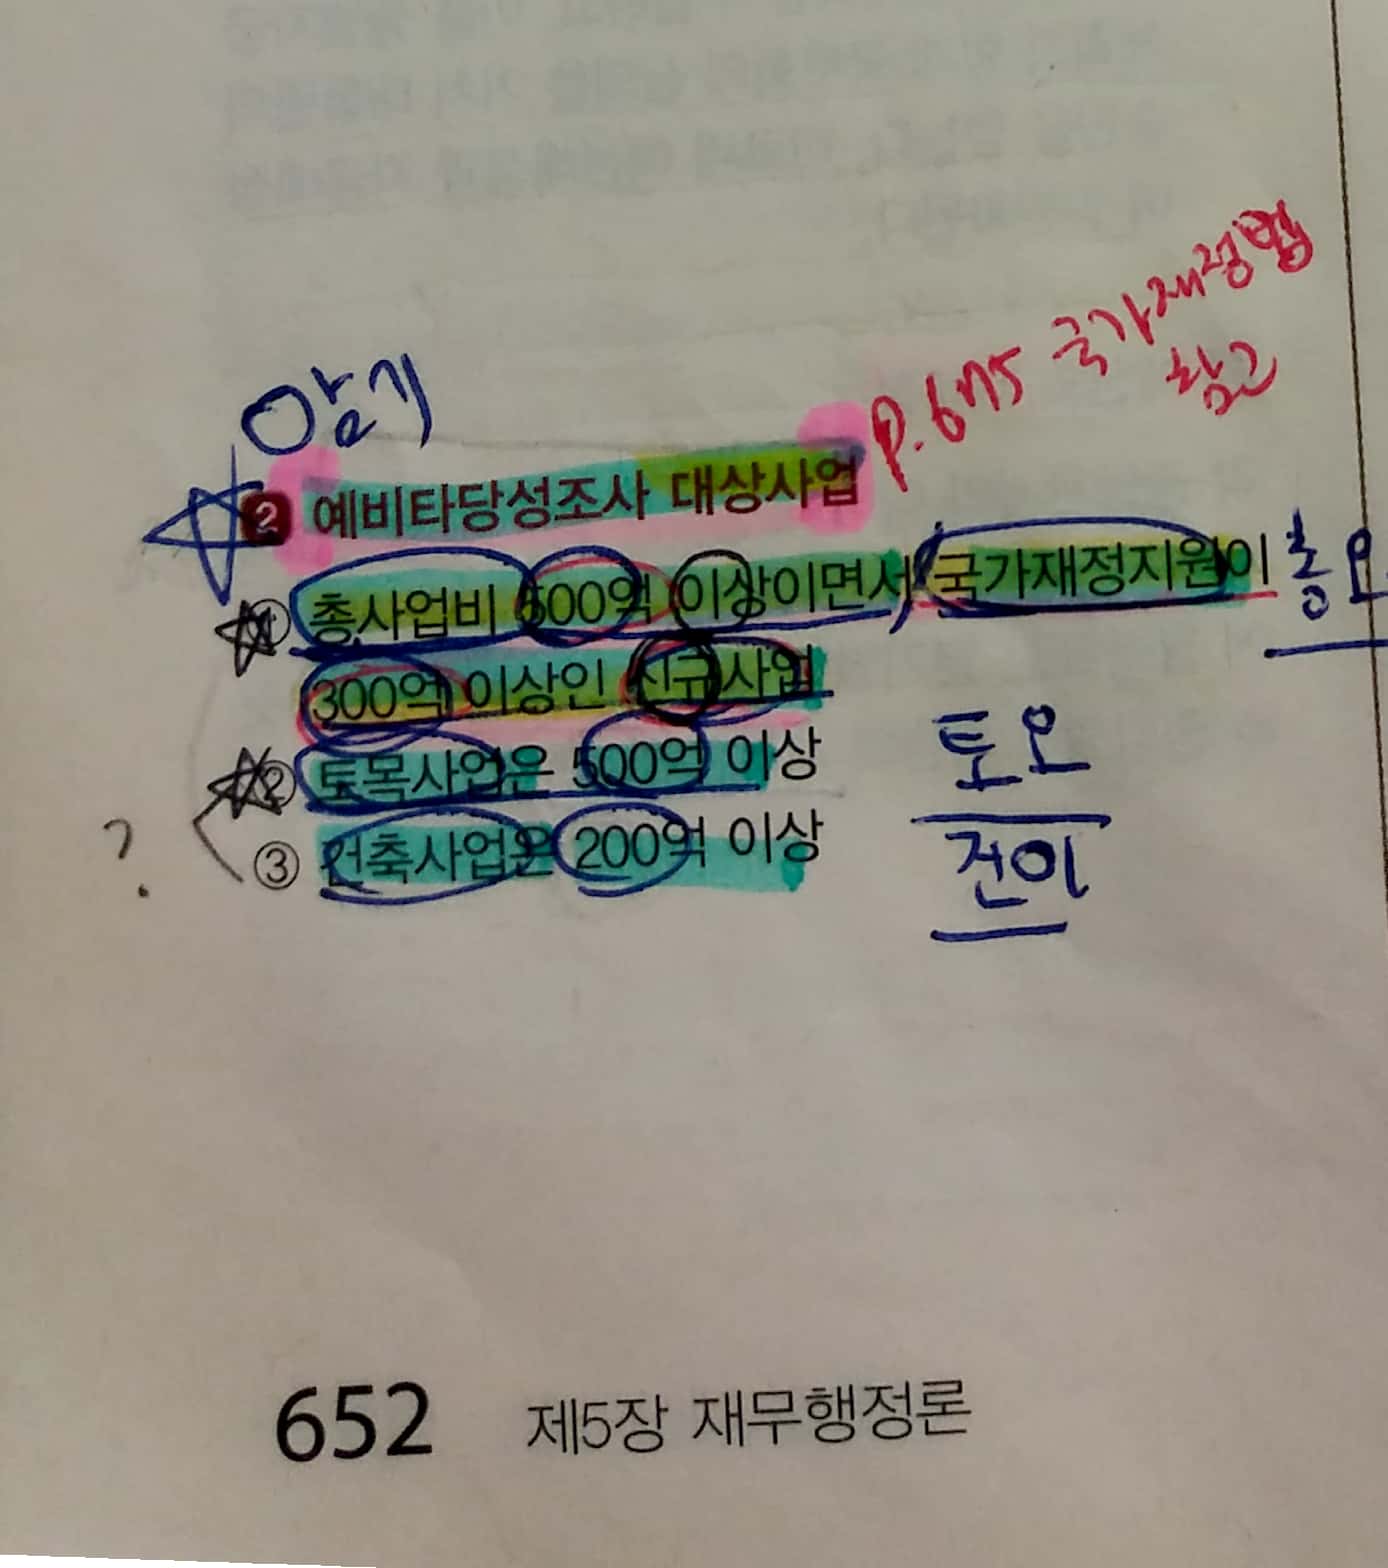 암기
p.675 국가재정법
참고
2 예비타당성조사 대상사업
① 총사업비 500억 이상이면서 국가재정지원이
총오
300억 이상인 신규사업
② 토목사업은 500억 이상
토오
③ 건축사업은 200억 이상
건이
?
652 제5장 재무행정론